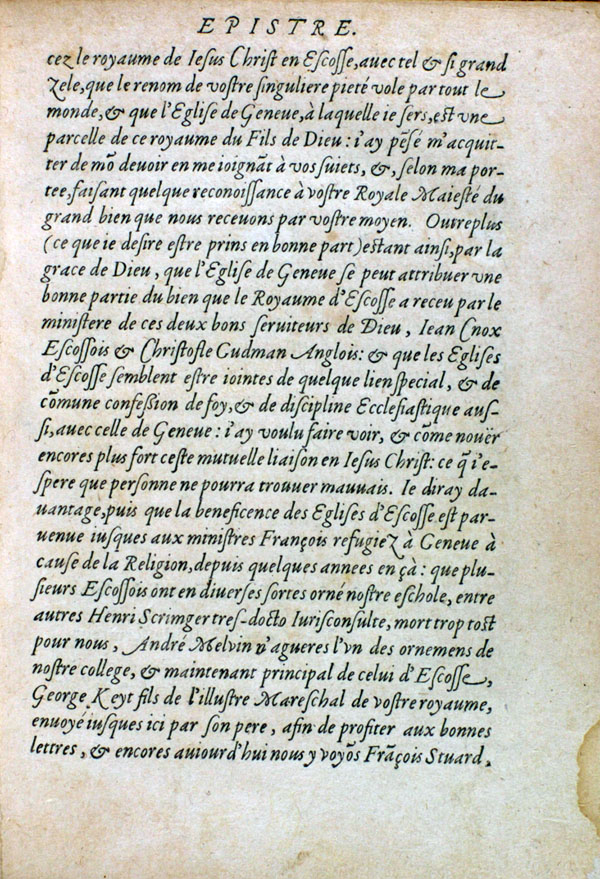 EPISTRE.
cez le royaume de Iesus Christ en Escosse, avec tel & si grand
zele, que le renom de vostre singuliere pieté vole par tout le
monde, & que l'Eglise de Geneue, à laquelle ie sers, est vne
parcelle de ce royaume du Fils de Dieu: i'ay pẽsé m'acquit-
ter de mõ devoir en me ioignãt à vos suiets, &, selon ma por-
tee, faisant quelque reconoissance à vostre Royale Maiesté du
grand bien que nous recevons par vostre moyen. Outreplus
(ce que ie desire estre prins en bonne part) estant ainsi, par la
grace de Dieu, que l'Eglise de Geneue se peut attribuer vne
bonne partie du bien que le Royaume d'Escosse a receu par le
ministere de ces deux bons seruiteurs de Dieu, Iean Cnox
Escossois & Christofle Gudman Anglois: & que les Eglises
d'Escosse semblent estre iointes de quelque lien special, & de
cõmune confession de foy, & de discipline Ecclesiastique aus-
si, avec celle de Geneue: i'ay voulu faire voir, & cõme nouër
encores plus fort ceste mutuelle liaison en Iesus Christ: ce q̃ i'e-
spere que personne ne pourra trouuer mauuais. Ie diray da-
uantage, puis que la beneficence des Eglises d'Escosse est par-
uenue iusques aux ministres François refugiez à Geneue à
cause de la Religion, depuis quelques annees en çà: que plu-
sieurs Escossois ont en diverses sortes orné nostre eschole, entre
autres Henri Scrimger tres-docto Iurisconsulte, mort trop tost
pour nous, André Melvin n'agueres l'vn des ornemens de
nostre college, & maintenant principal de celui d'Escosse,
George Keyt fils de l'illustre Mareschal de vostre royaume,
enuoyé iusques ici par son pere, afin de profiter aux bonnes
lettres, & encores auiourd'hui nous y voyõs Frãçois Stuard,